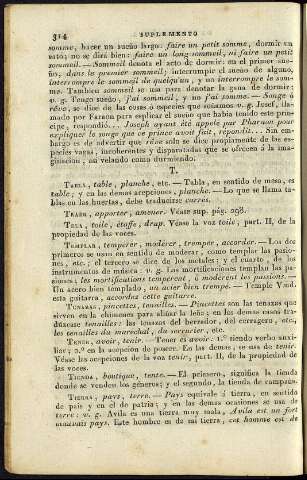 314 SUPLEMENTO
somme, hacer un sueño largo: faire un petit somme, dormir un
rato; no se dirá bien: faire un long sommeil, ni faire un petit
sommeil. — Sommeil denota el acto de dormir: en el primer sue-
ño; dans le premier sommeil; interrumpir el sueño de alguno,
interrompre le sommeil de quelqu'un, y no interrompre le som-
me. Tambien sommeil se usa para denotar la gana de dormir:
v. g. Tengo sueño, j'ai sommeil, y no j'ai somme. — Songe á
rêve, se dice de las cosas ó especies que soñamos v. g. Josef, lla-
mado por Faraon para explicar el sueño que habia tenido este prin-
cipe, respondió... Joseph ayant été appelé par Pharaon pour
expliquer le songe que ce prince avoit fait, répondit... Sin em-
bargo es de advertir que rêve solo se dice propiamente de las es-
pecies vagas, incoherentes y disparatadas que se ofrecen á la ima-
ginacion, ya velando como durmiendo.
T.
TABLA, table, planche, etc. — Tabla, en sentido de mesa, es
table; y en las demas acepciones, planche. — Lo que se llama ta-
blas en las huertas, debe traducirse carrés.
TRAER, apporter, amener. Véase sup. pág. 298.
TELA, toile, étoffe, drap. Véase la voz toile, part. II, de la
propiedad de las voces.
TEMPLAR, temperer, modérer, tremper, accorder. — Los dos
primeros se usan en sentido de moderar, como templar las pasio-
nes, etc.; el tercero se dice de los metales; y el cuarto, de los
instrumentos de música: v. g. Las mortificaciones templan las pa-
siones; les mortifications tempèrent, ó modèrent les passions. —
Un acero bien templado, un acier bien trempé. — Temple Vmd.
esta guitarra, accordez cette guitarre.
TENAZAS, pincettes, tenailles. — Pincettes son las tenazas que
sirven en la chimenea para aliñar la leña; en las demas cosas tra-
dúzcase tenailles: las tenazas del herrador, del cerragero, etc.;
les tenailles du maréchal, du serrurier, etc.
TENER, avoir, tenir. — Tener es avoir. 1.º siendo verbo auxi-
liar; 2.º en la acepcion de poseer. En las demas, se usa de tenir.
Véase las acepciones de la voz tenir, part. II, de la propiedad de
las voces.
TIENDA, boutique, tente. — El primero, significa la tienda
donde se venden los géneros; y el segundo, la tienda de campaña.
TIERRA, pays, terre. — Pays equivale á tierra, en sentido
de pais y en el de patria; y en las demas ocasiones se usa de
terre: v. g. Avila es una tierra muy mala, Avila est un fort
mauvais pays. Este hombre es de mi tierra, cet homme est de